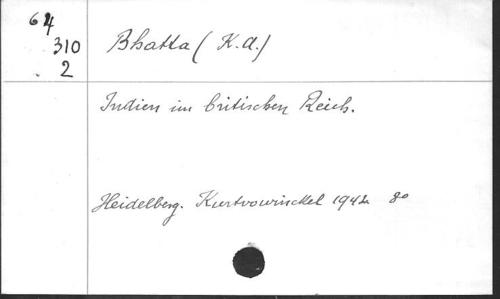 64
310
2
Bhatta (K.A.)
Indien im britischen Reich.
Heidelberg. Kurtvowinckel 1942 8o